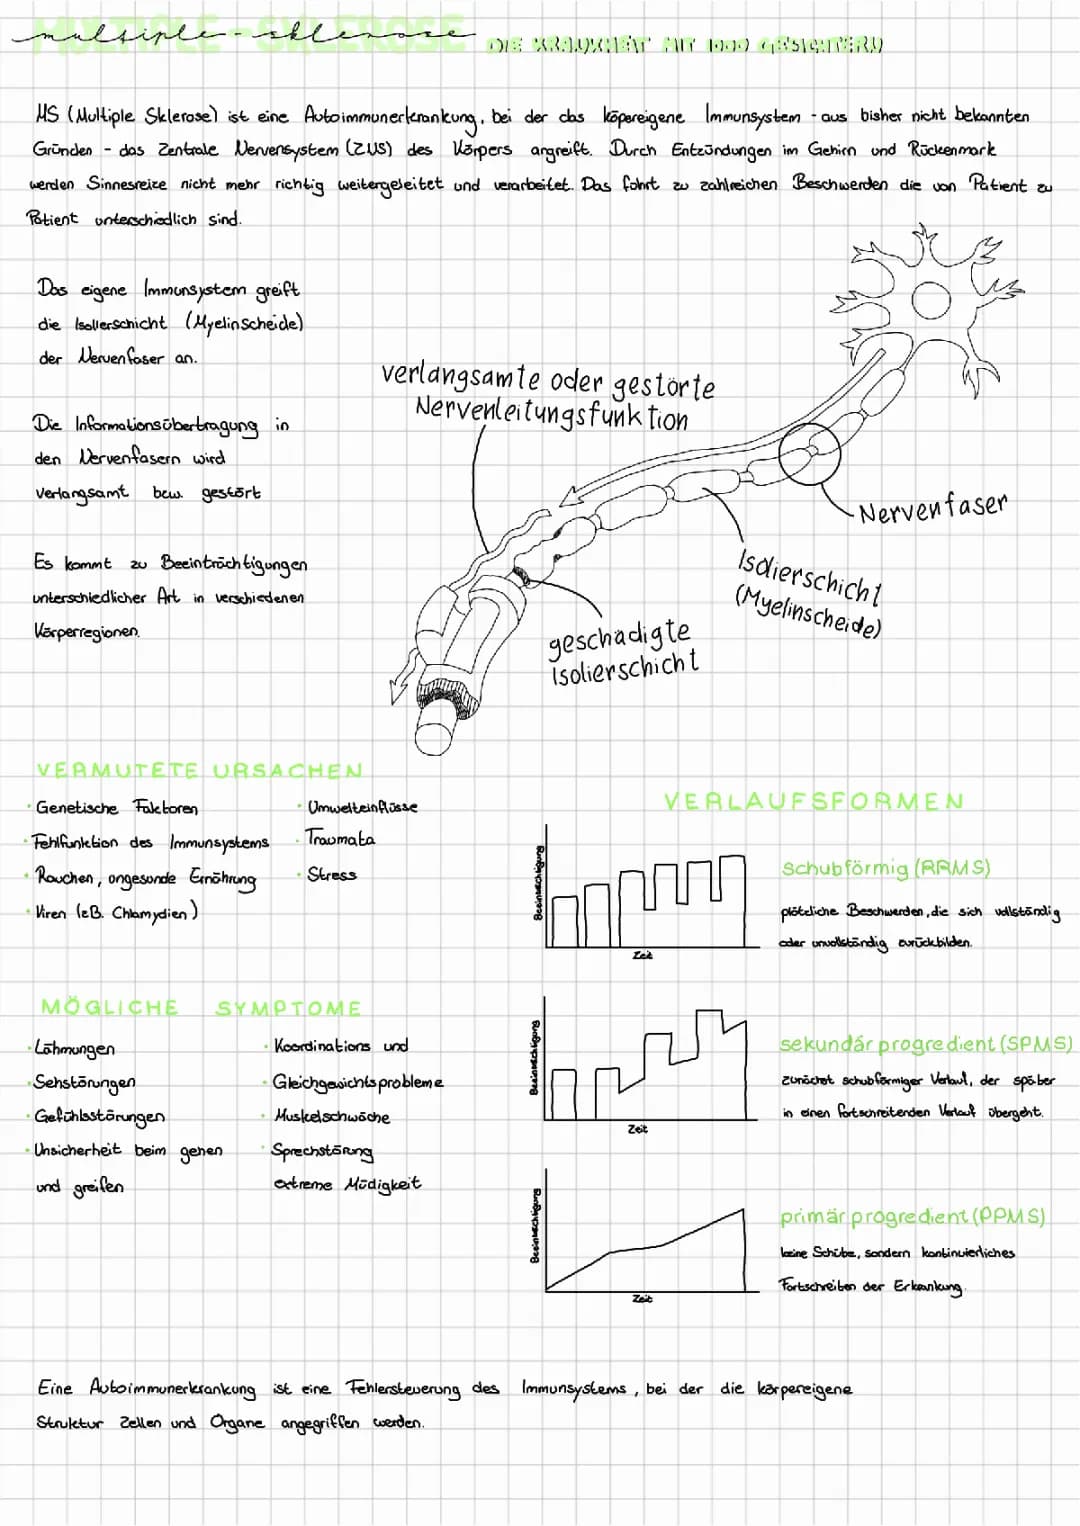 MULTIPLE-SKLEROSE
multiple-sklerose
DIE KRANKHEIT MIT 1000 GESICHTERN
MS (Multiple Sklerose) ist eine Autoimmunerkrankung, bei der das köpereigene Immunsystem - aus bisher nicht bekannten
Gründen - das Zentrale Nervensystem (ZNS) des Körpers angreift. Durch Entzündungen im Gehirn und Rückenmark
werden Sinnesreize nicht mehr richtig weitergeleitet und verarbeitet. Das führt zu zahlreichen Beschwerden die von Patient zu
Patient unterschiedlich sind.
Das eigene Immunsystem greift
die Isolierschicht (Myelinscheide)
der Nervenfaser an.
Die Informationsübertragung in
den Nervenfasern wird
verlangsamt bzw. gestört
Es kommt zu Beeinträchtigungen
unterschiedlicher Art in verschiedenen
Körperregionen.
verlangsamte oder gestörte
Nervenleitungsfunktion
Nervenfaser
Isolierschicht
(Myelinscheide)
geschädigte
Isolierschicht
VERMUTETE URSACHEN
· Genetische Faktoren
· Fehlfunktion des Immunsystems
· Rauchen, ungesunde Ernährung
· Viren (z.B. Chlamydien)
· Umwelteinflüsse
· Traumata
· Stress
MÖGLICHE SYMPTOME
· Lähmungen
· Sehstörungen
· Gefühlsstörungen
· Unsicherheit beim gehen
und greifen
· Koordinations und
· Gleichgewichtsprobleme
· Muskelschwäche
· Sprechstörung
extreme Müdigkeit
VERLAUFSFORMEN
Beeinträchtigung
Zeit
schubförmig (RRMS)
plötzliche Beschwerden, die sich vollständig
oder unvollständig zurückbilden.
Beeinträchtigung
Zeit
sekundär progredient (SPMS)
zunächst schubförmiger Verlauf, der später
in einen fortschreitenden Verlauf übergeht.
Beeinträchtigung
Zeit
primär progredient (PPMS)
keine Schübe, sondern kontinuierliches
Fortschreiten der Erkrankung.
Eine Autoimmunerkrankung ist eine Fehlersteuerung des Immunsystems, bei der die körpereigene
Struktur Zellen und Organe angegriffen werden.